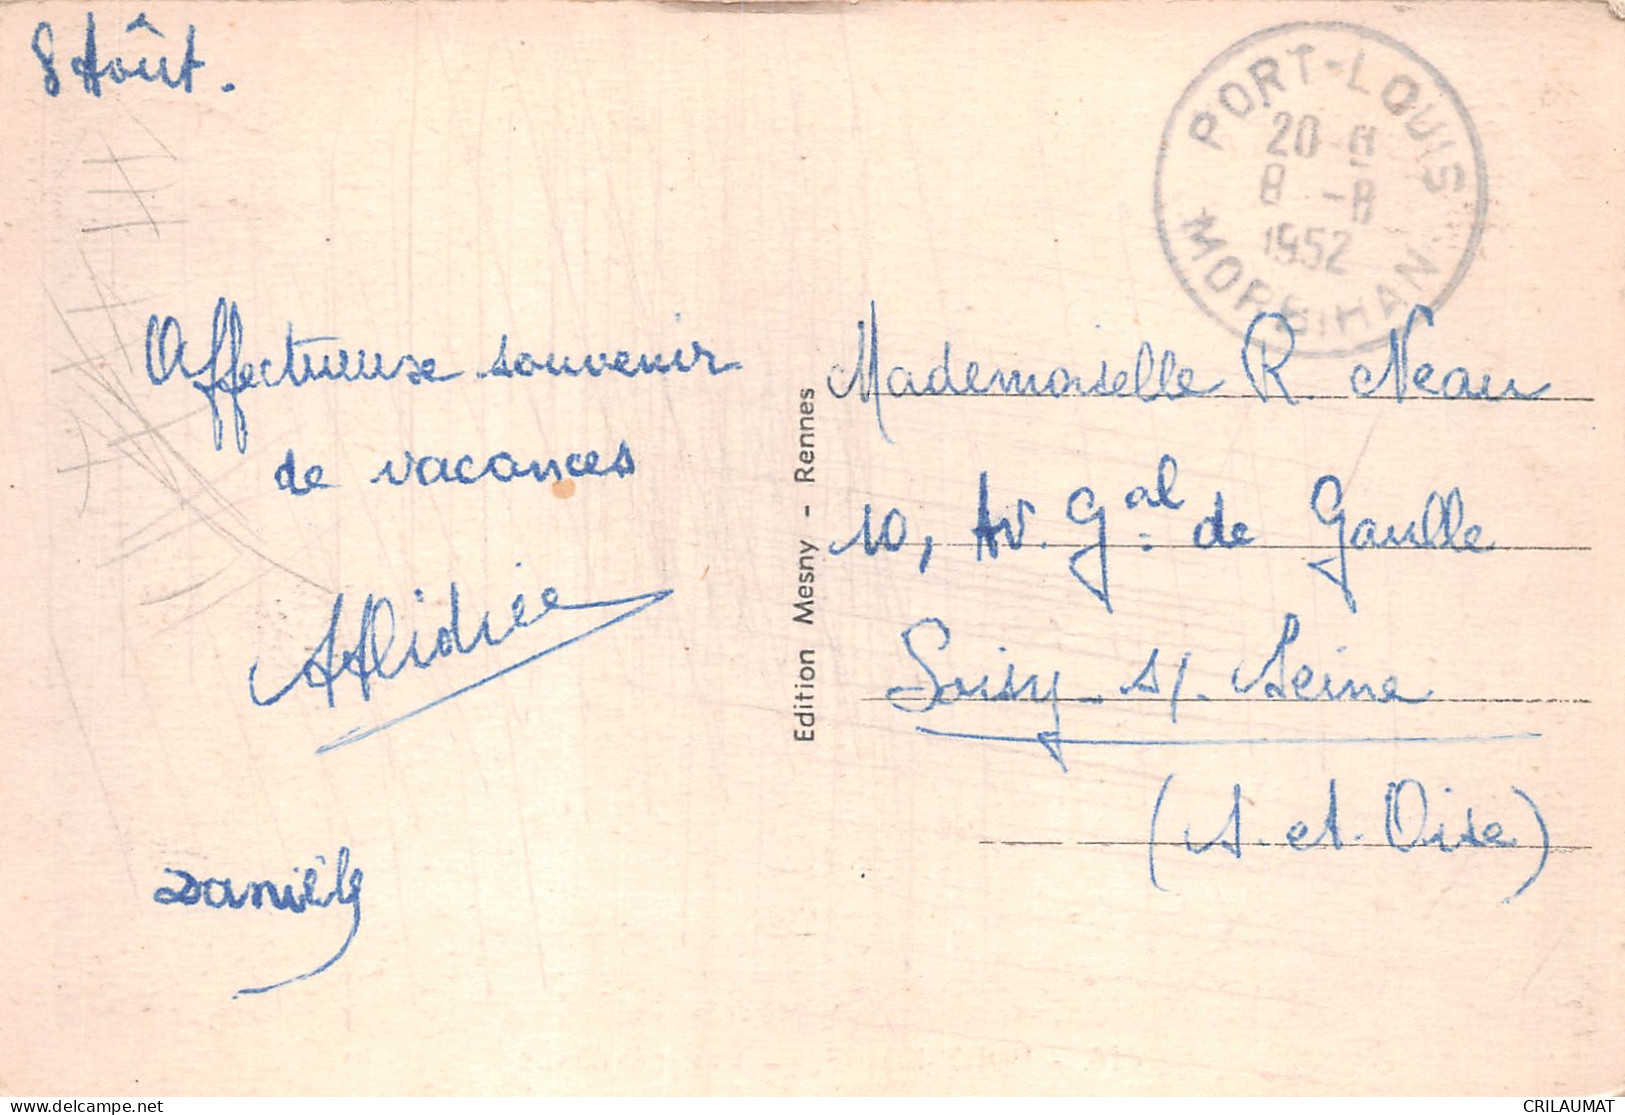 8 Août.
PORT-LOUIS
20 H
8 -8
1952
*MORBIHAN
Affectueuse souvenir
de vacances
Danièle
Edition Mesny - Rennes
Mademoiselle R. Neau
10, Av. Gal de Gaulle
Soisy s/. Seine
(S. et. Oise)
delcampe.net
CRILAUMAT